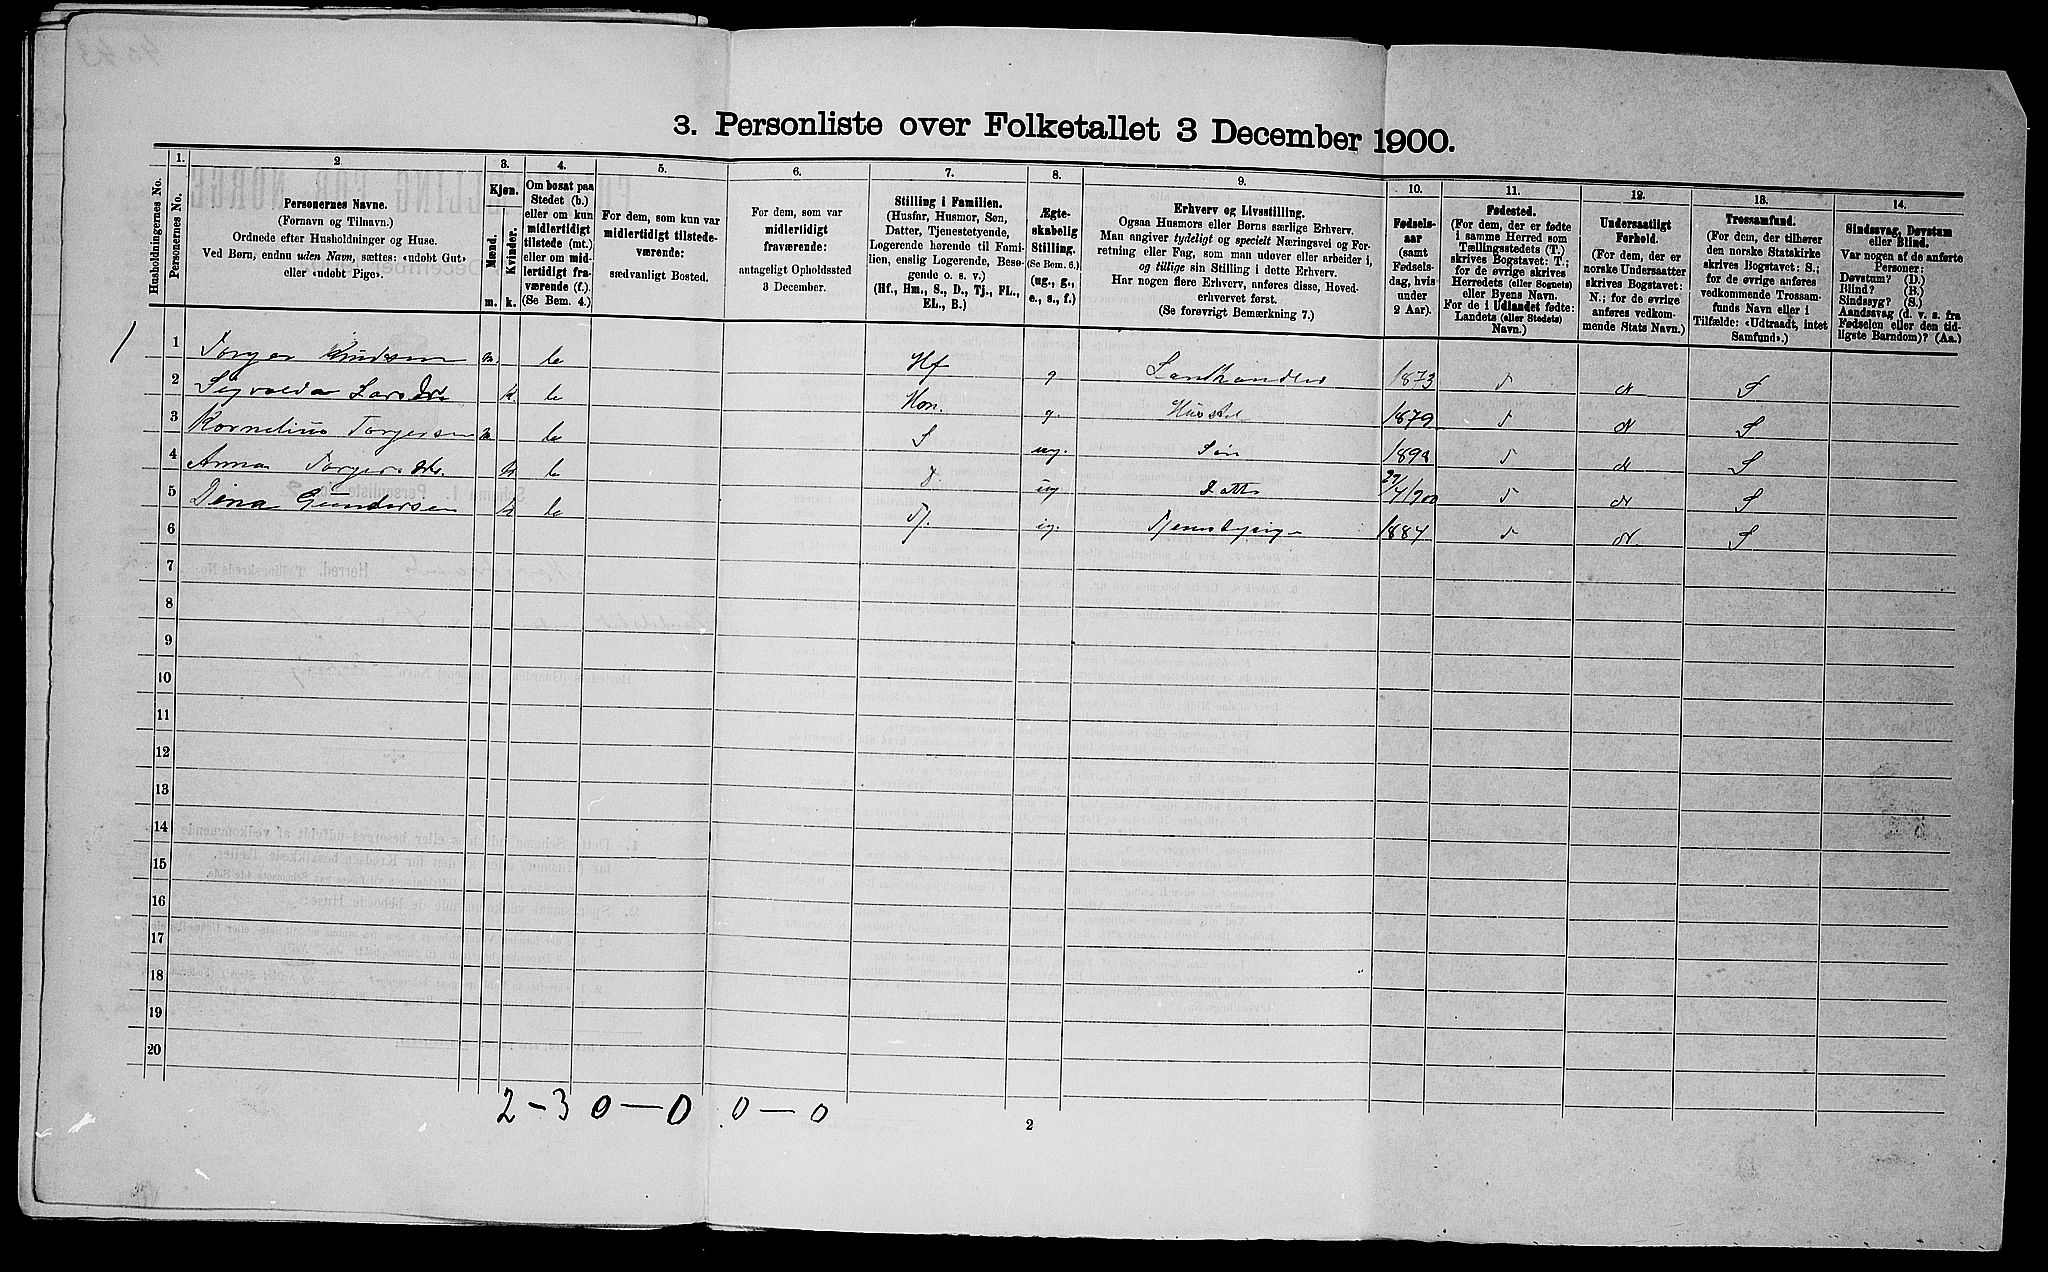 3. Personliste over Folketallet 3 December 1900.
Husholdningernes No.
1.
Personernes No.
2
Personernes Navne.
(Fornavn og Tilnavn.)
Ordnede efter Husholdninger og Huse.
Ved Børn, endnu uden Navn, sættes: «udøbt Gut»
eller «udøbt Pige».
3.
Kjøn.
Mænd.
Kvinder.
m.
k.
4.
Om bosat paa
Stedet (b.)
eller om kun
midlertidigt
tilstede (mt.)
eller om mid-
lertidigt fra-
værende (f.).
(Se Bem. 4.)
5.
For dem, som kun var
midlertidigt tilstede-
værende:
sædvanligt Bosted.
6.
For dem, som var
midlertidigt
fraværende:
antageligt Opholdssted
3 December.
7.
Stilling i Familien.
(Husfar, Husmor, Søn,
Datter, Tjenestetyende,
Logerende hørende til Fami-
lien, enslig Logerende, Besø-
gende o. s. v.)
(Hf., Hm., S., D., Tj., FL.,
EL., B.)
8.
Ægte-
skabelig
Stilling.
(Se Bem. 6.)
(ug., g.,
e., s., f.)
9.
Erhverv og Livsstilling.
Ogsaa Husmors eller Børns særlige Erhverv.
Man angiver tydeligt og specielt Næringsvei og For-
retning eller Fag, som man udøver eller arbeider i,
og tillige sin Stilling i dette Erhverv.
Har nogen flere Erhverv, anføres disse, Hoved-
erhvervet først.
(Se forøvrigt Bemærkning 7.)
10.
Fødsels-
aar
(samt
Fødsels-
dag, hvis
under
2 Aar).
11.
Fødested.
(For dem, der er fødte
i samme Herred som
Tællingsstedets (T.)
skrives Bogstavet: T.;
for de øvrige skrives
Herredets (eller Sognets)
eller Byens Navn.
For de i Udlandet fødte:
Landets (eller Stedets)
Navn.)
12.
Undersaatligt
Forhold.
(For dem, der er
norske Undersaatter
skrives Bogstavet:
N.; for de øvrige
anføres vedkom-
mende Stats Navn.)
13.
Trossamfund.
(For dem, der tilhører
den norske Statskirke
skrives Bogstavet: S.;
for de øvrige anføres
vedkommende Trossam-
funds Navn eller i
Tilfælde: «Udtraadt, intet
Samfund».)
14.
Sindssvag, Døvstum
eller Blind.
Var nogen af de anførte
Personer:
Døvstum? (D.)
Blind? (B.)
Sindssyg? (S.)
Aandssvag (d. v. s. fra
Fødselen eller den tid-
ligste Barndom)? (Aa.)
1 1 Torger Knudsen m b Hf g Landhandler 1873 T N S
2 Sigvalda Larsdtr k. b Hm. g. Husstel 1879 T N S
3 Kornelius Torgersen m b S ug. Søn 1898 T N S
4 Anna Torgersdtr. k b d ug Datter 29/4 1900 T N S
5 Dina Gundersen k b Tj. ug. Tjenestepige 1884 T N. S
6
7
8
9
10
11
12
13
14
15
16
17
18
19
20
2 – 3 0 – 0 0 – 0
2